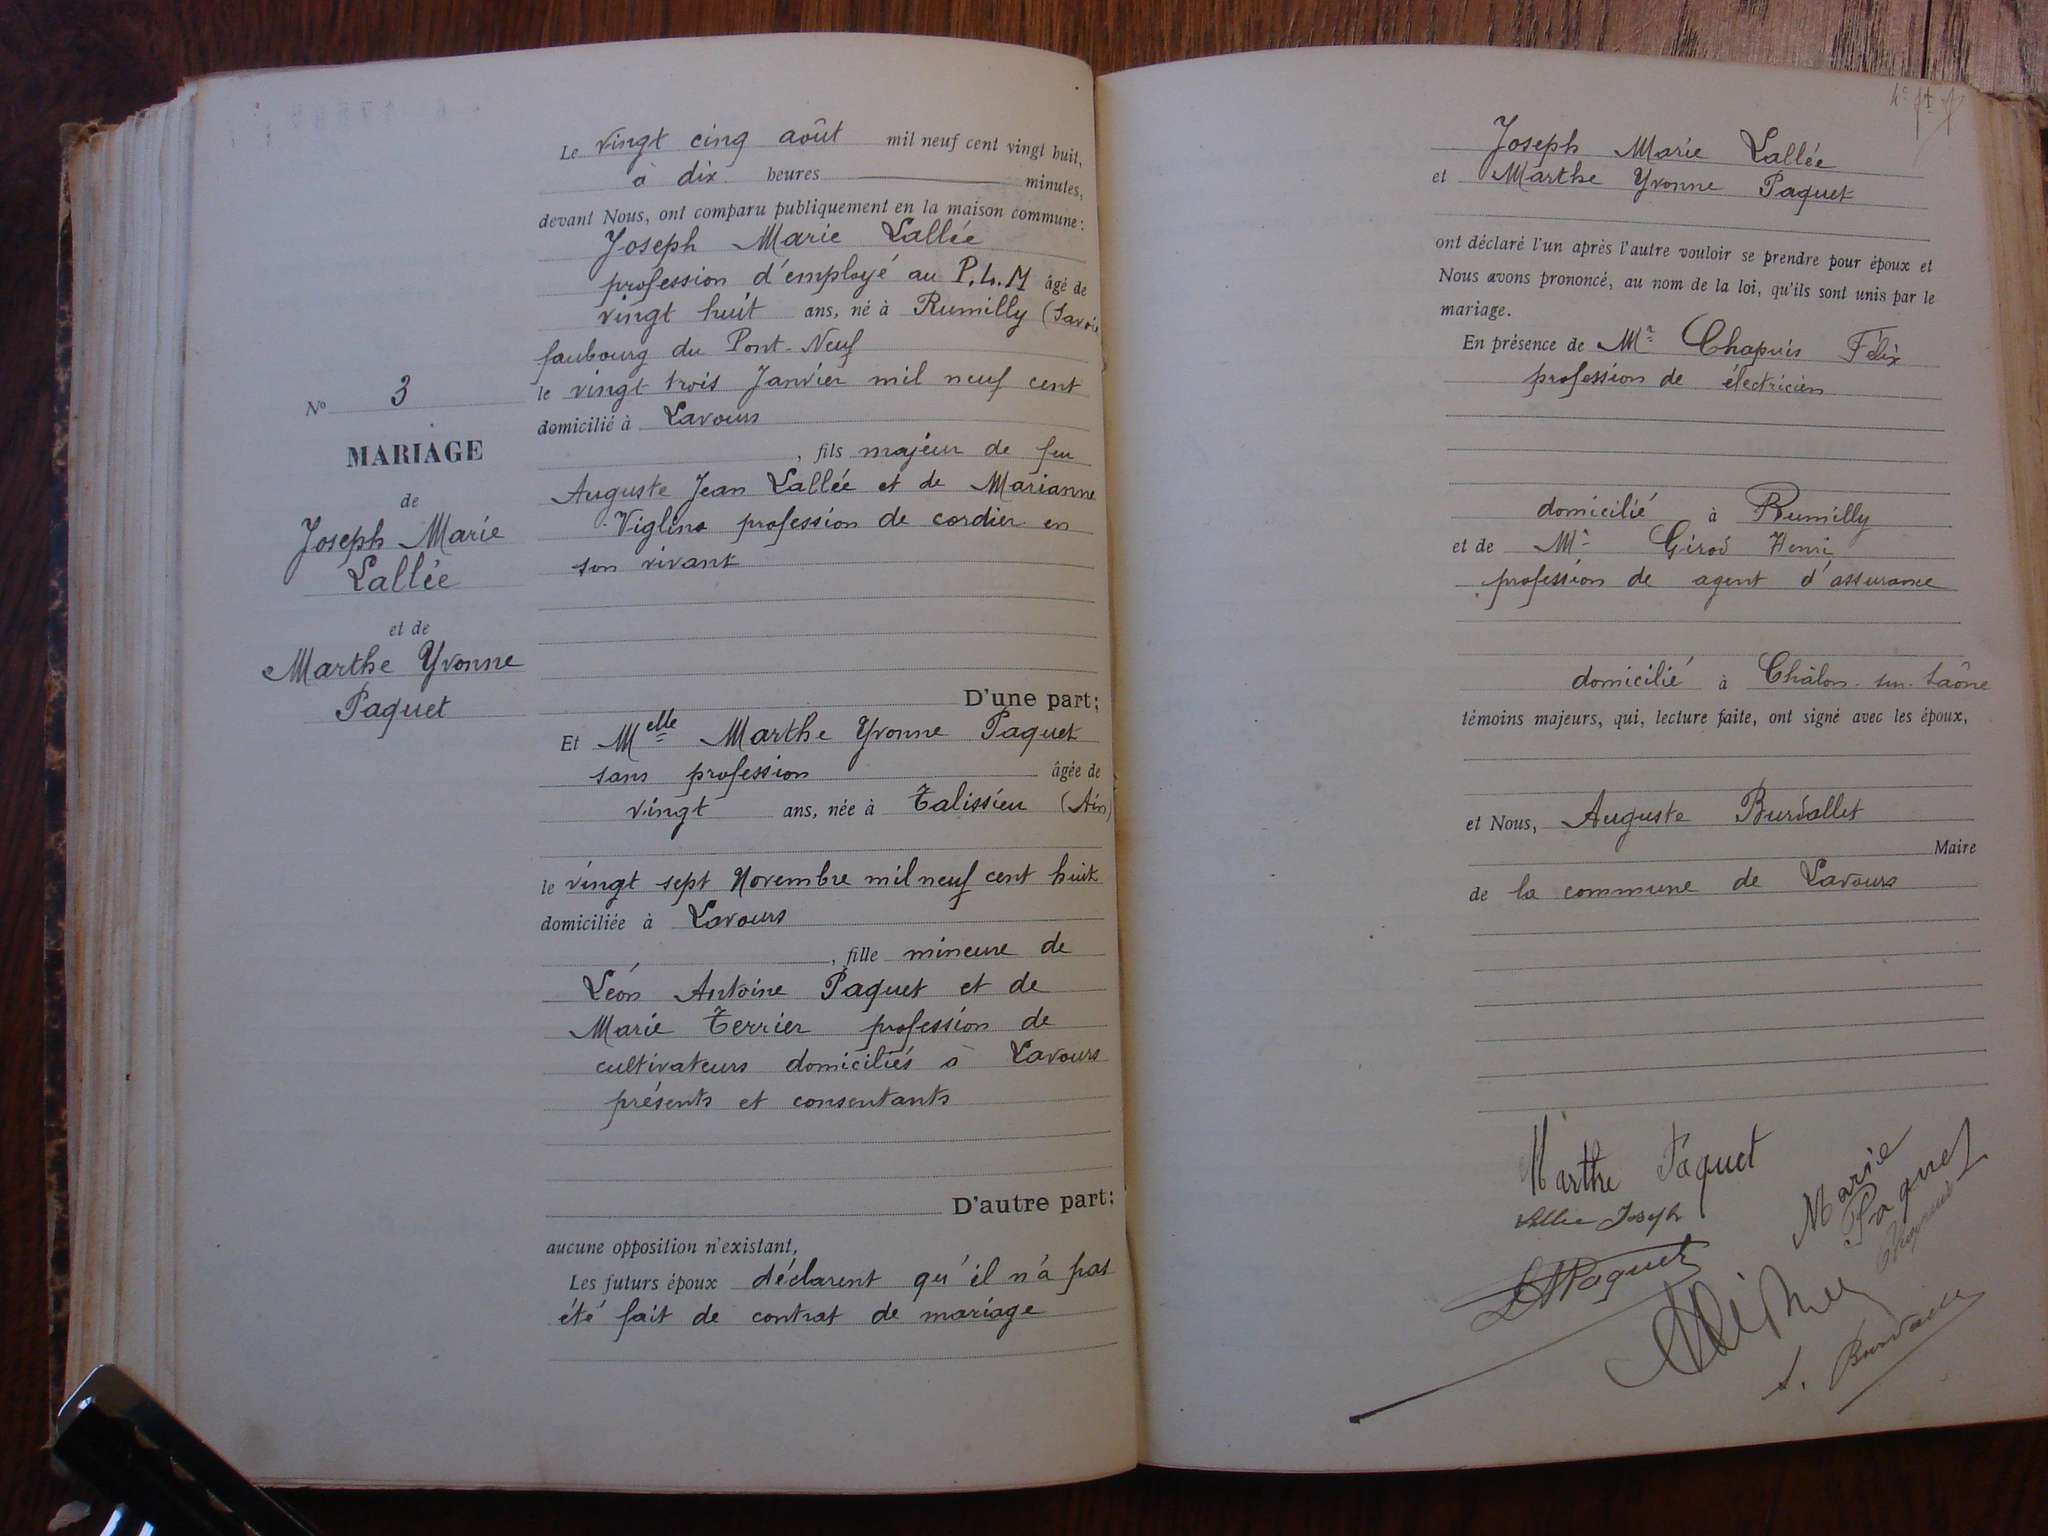 Le vingt cinq août mil neuf cent vingt huit,
à dix heures minutes,
devant Nous, ont comparu publiquement en la maison commune:
Joseph Marie Lallée
profession d'employé au P.L.M âgé de
vingt huit ans, né à Rumilly (Savoie
faubourg du Pont-Neuf
le vingt trois Janvier mil neuf cent
domicilié à Lavours
, fils majeur de feu
Auguste Jean Lallée et de Marianne
Viglino profession de cordier en
son vivant
D'une part;
Nº 3
MARIAGE
de
Joseph Marie
Lallée
et de
Marthe Yvonne
Paquet
Et Melle Marthe Yvonne Paquet
sans profession âgée de
vingt ans, née à Talissieu (Ain)
le vingt sept Novembre mil neuf cent huit
domiciliée à Lavours
, fille mineure de
Léon Antoine Paquet et de
Marie Terrier profession de
cultivateurs domiciliés à Lavours
présents et consentants
D'autre part;
aucune opposition n'existant,
Les futurs époux déclarent qu'il n'a pas
été fait de contrat de mariage
Joseph Marie Lallée
et Marthe Yvonne Paquet
ont déclaré l'un après l'autre vouloir se prendre pour époux et
Nous avons prononcé, au nom de la loi, qu'ils sont unis par le
mariage.
En présence de Mr Chapuis Félix
profession de électricien
domicilié à Rumilly
et de Mr Girod Henri
profession de agent d'assurance
domicilié à Châlon-sur-Saône
témoins majeurs, qui, lecture faite, ont signé avec les époux,
et Nous, Auguste Burdallet
Maire
de la commune de Lavours
Marthe Paquet
Marie
Paquet
Lallée Joseph
Chapuis
Paquet
A. Burdallet